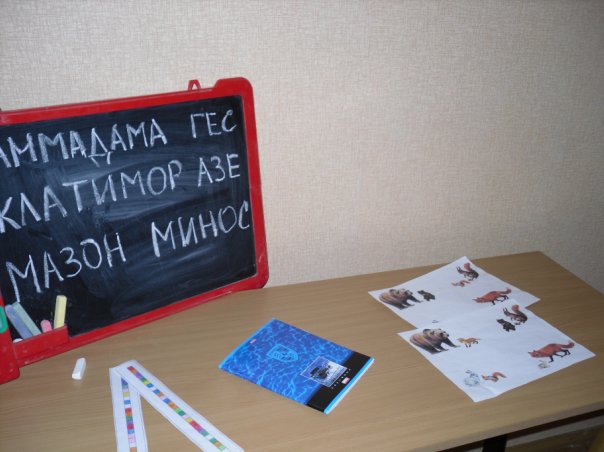 АММАДАМА ГЕС
КЛАТИМОР АЗЕ
МАЗОН МИНОС